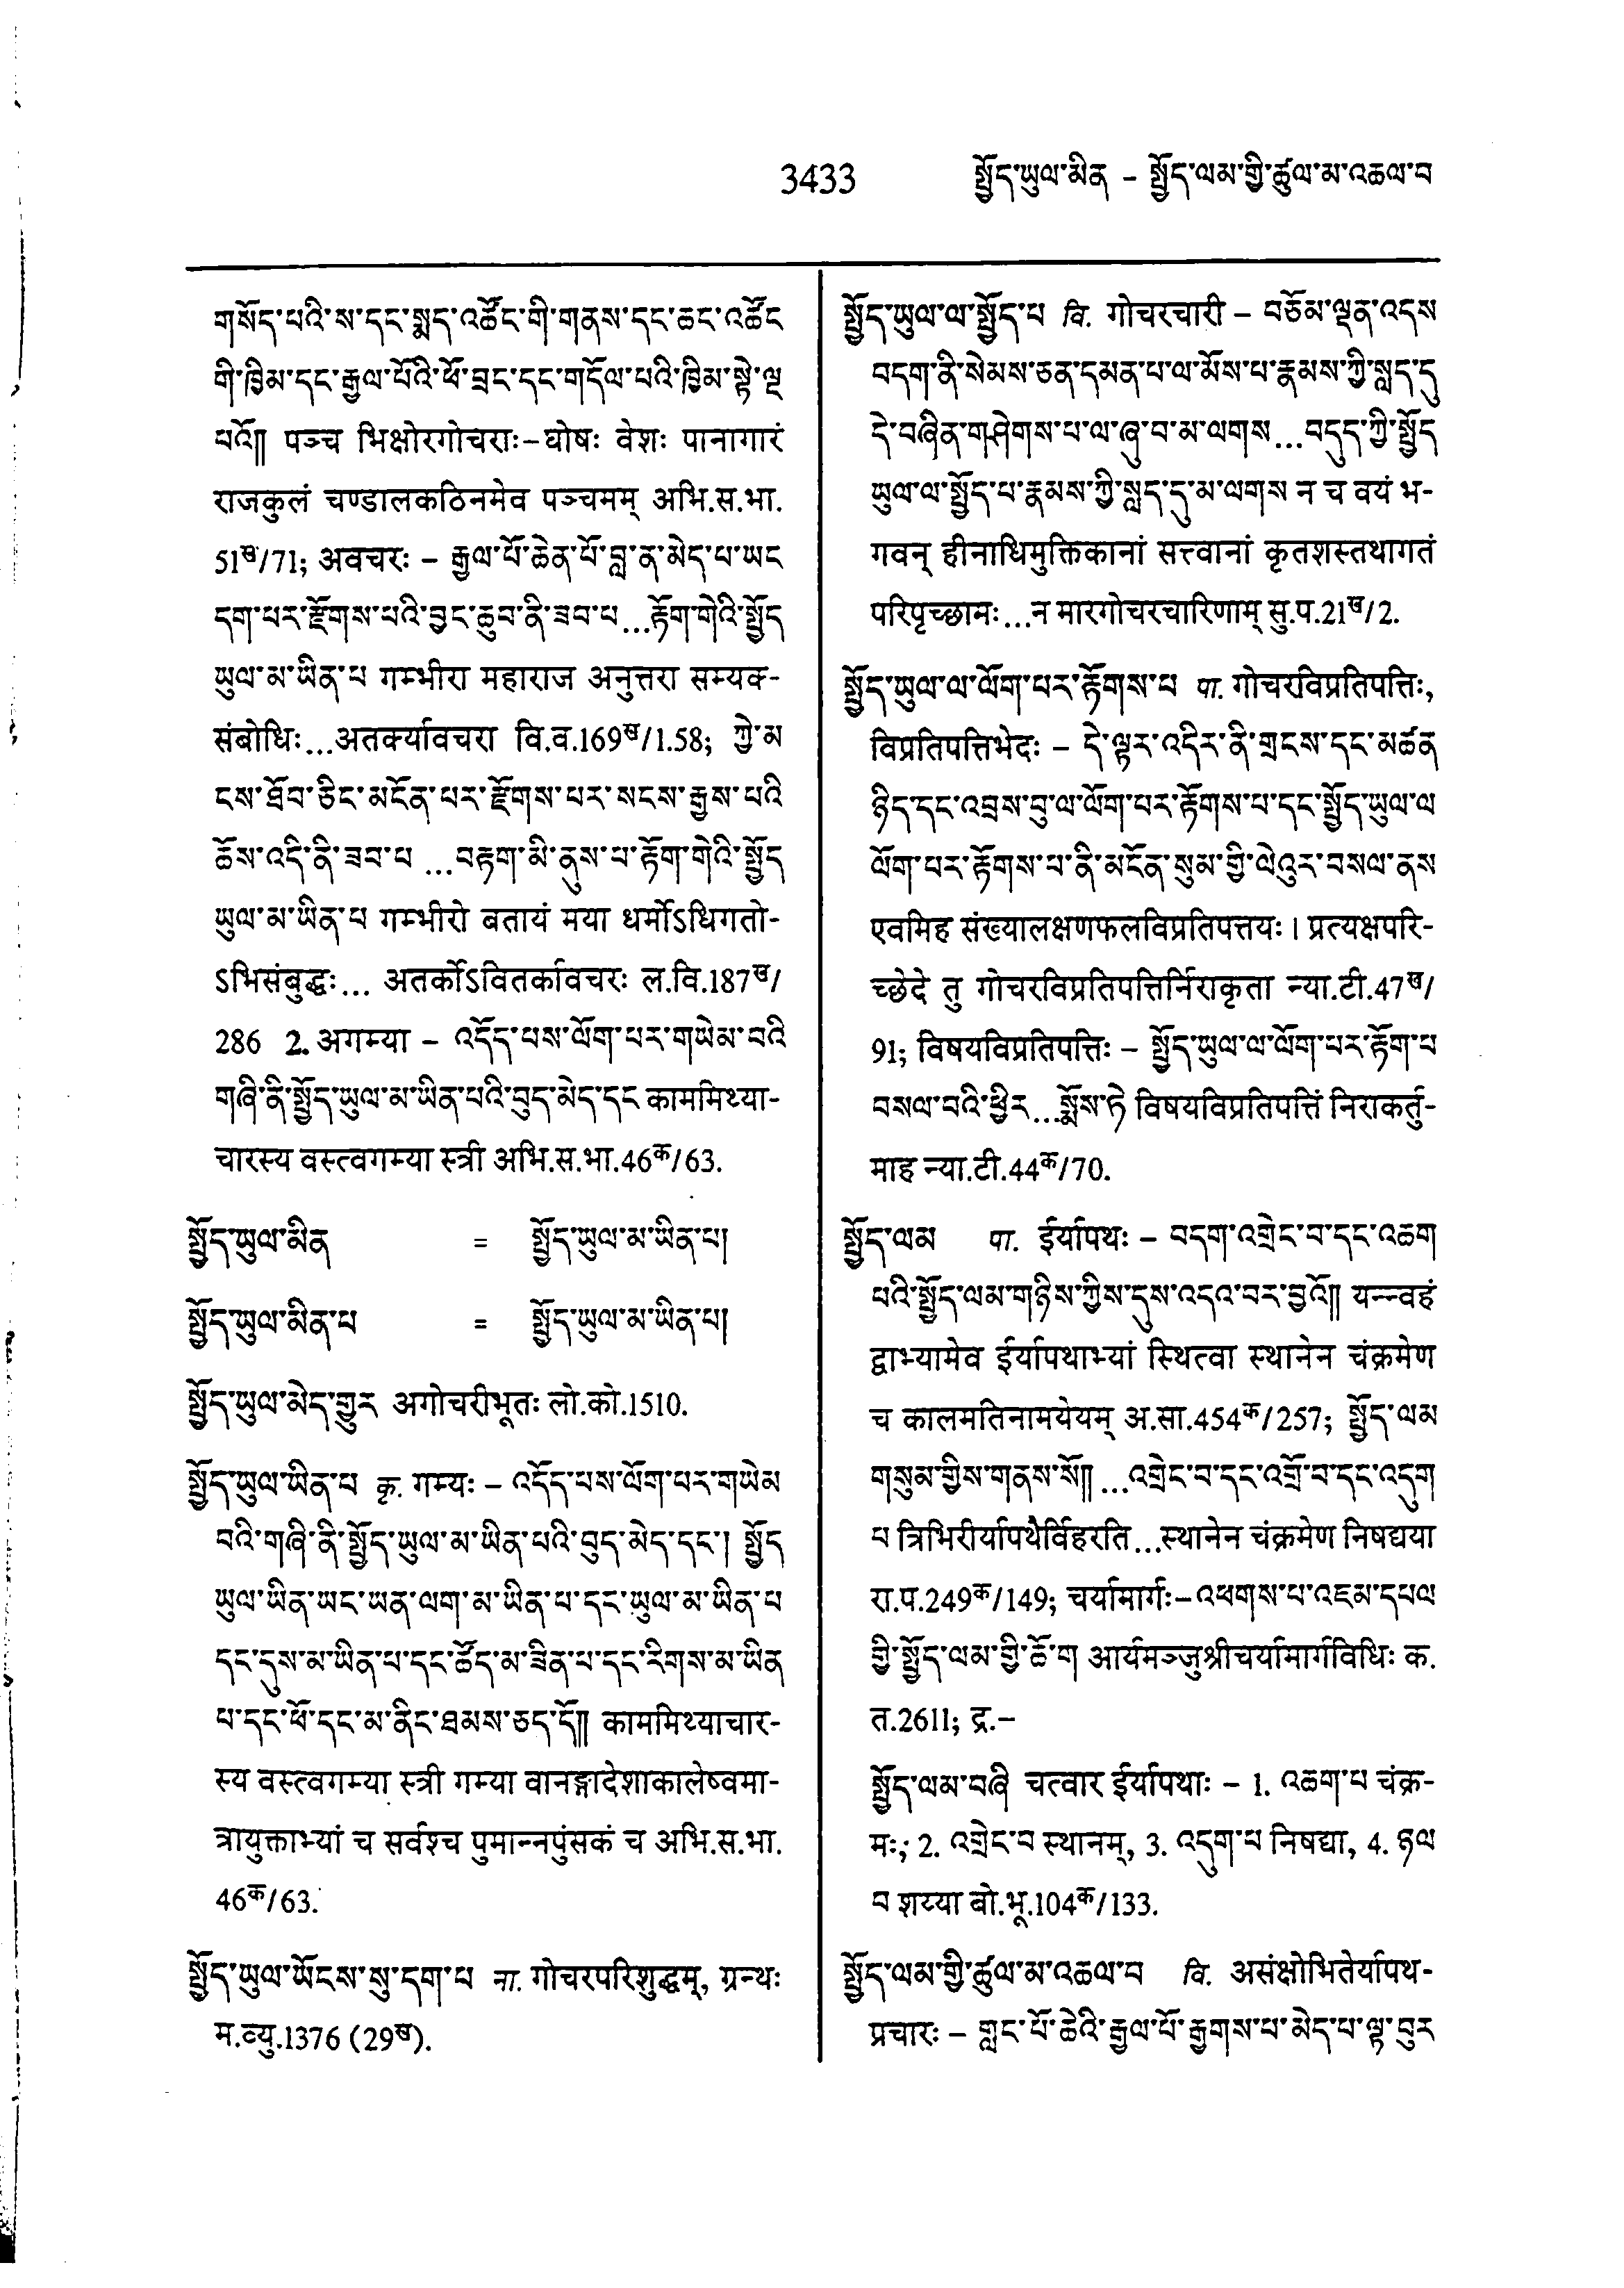 3433
སྤྱོད་ཡུལ་མིན – སྤྱོད་ལམ་གྱི་ཚུལ་མ་འཆལ་བ
གསོད་པའི་ས་དང་སྨད་འཚོང་གི་གནས་དང་ཆང་འཚོང
གི་ཁྱིམ་དང་རྒྱལ་པོའི་ཕོ་བྲང་དང་གདོལ་པའི་ཁྱིམ་སྟེ་ལྔ
པའོ།། पञ्च भिक्षोरगोचराः–घोषः वेशः पानागारं
राजकुलं चण्डालकठिनमेव पञ्चमम् अभि.स.भा.
51ख/71; अवचरः – རྒྱལ་པོ་ཆེན་པོ་བླ་ན་མེད་པ་ཡང
དག་པར་རྫོགས་པའི་བྱང་ཆུབ་ནི་ཟབ་པ...རྟོག་གེའི་སྤྱོད
ཡུལ་མ་ཡིན་པ गम्भीरा महाराज अनुत्तरा सम्यक-
संबोधिः...अतर्क्यावचरा वि.व.169ख/1.58; ཀྱེ་མ
ངས་ཐོབ་ཅིང་མངོན་པར་རྫོགས་པར་སངས་རྒྱས་པའི
ཆོས་འདི་ནི་ཟབ་པ ...བརྟག་མི་ནུས་པ་རྟོག་གེའི་སྤྱོད
ཡུལ་མ་ཡིན་པ गम्भीरो बतायं मया धर्मोऽधिगतो-
ऽभिसंबुद्धः... अतर्कोऽवितर्कावचरः ल.वि.187ख/
286 2. अगम्या – འདོད་པས་ལོག་པར་གཡེམ་བའི
གཞི་ནི་སྤྱོད་ཡུལ་མ་ཡིན་པའི་བུད་མེད་དང काममिथ्या-
चारस्य वस्त्वगम्या स्त्री अभि.स.भा.46क/63.
སྤྱོད་ཡུལ་མིན = སྤྱོད་ཡུལ་མ་ཡིན་པ།
སྤྱོད་ཡུལ་མིན་པ = སྤྱོད་ཡུལ་མ་ཡིན་པ།
སྤྱོད་ཡུལ་མེད་གྱུར अगोचरीभूतः लो.को.1510.
སྤྱོད་ཡུལ་ཡིན་པ कृ. गम्यः – འདོད་པས་ལོག་པར་གཡེམ
བའི་གཞི་ནི་སྤྱོད་ཡུལ་མ་ཡིན་པའི་བུད་མེད་དང་། སྤྱོད
ཡུལ་ཡིན་ཡང་ཡན་ལག་མ་ཡིན་པ་དང་ཡུལ་མ་ཡིན་པ
དང་དུས་མ་ཡིན་པ་དང་ཚོད་མ་ཟིན་པ་དང་རིགས་མ་ཡིན
པ་དང་ཕོ་དང་མ་ནིང་ཐམས་ཅད་དོ།། काममिथ्याचार-
स्य वस्त्वगम्या स्त्री गम्या वानङ्गादेशाकालेष्वमा-
त्रायुक्ताभ्यां च सर्वश्च पुमान्नपुंसकं च अभि.स.भा.
46क/63.
སྤྱོད་ཡུལ་ཡོངས་སུ་དག་པ ना. गोचरपरिशुद्धम्, ग्रन्थः
म.व्यु.1376 (29ख).
སྤྱོད་ཡུལ་ལ་སྤྱོད་པ वि. गोचरचारी – བཅོམ་ལྡན་འདས
བདག་ནི་སེམས་ཅན་དམན་པ་ལ་མོས་པ་རྣམས་ཀྱི་སླད་དུ
དེ་བཞིན་གཤེགས་པ་ལ་ཞུ་བ་མ་ལགས...བདུད་ཀྱི་སྤྱོད
ཡུལ་ལ་སྤྱོད་པ་རྣམས་ཀྱི་སླད་དུ་མ་ལགས न च वयं भ-
गवन् हीनाधिमुक्तिकानां सत्त्वानां कृतशस्तथागतं
परिपृच्छामः...न मारगोचरचारिणाम् सु.प.21ख/2.
སྤྱོད་ཡུལ་ལ་ལོག་པར་རྟོགས་པ पा. गोचरविप्रतिपत्तिः,
विप्रतिपत्तिभेदः – དེ་ལྟར་འདིར་ནི་གྲངས་དང་མཚན
ཉིད་དང་འབྲས་བུ་ལ་ལོག་པར་རྟོགས་པ་དང་སྤྱོད་ཡུལ་ལ
ལོག་པར་རྟོགས་པ་ནི་མངོན་སུམ་གྱི་ལེའུར་བསལ་ནས
एवमिह संख्यालक्षणफलविप्रतिपत्तयः। प्रत्यक्षपरि-
च्छेदे तु गोचरविप्रतिपत्तिर्निराकृता न्या.टी.47ख/
91; विषयविप्रतिपत्तिः – སྤྱོད་ཡུལ་ལ་ལོག་པར་རྟོག་པ
བསལ་བའི་ཕྱིར...སྨོས་ཏེ विषयविप्रतिपत्तिं निराकर्तु-
माह न्या.टी.44क/70.
སྤྱོད་ལམ पा. ईर्यापथः – བདག་འགྲེང་བ་དང་འཆག
པའི་སྤྱོད་ལམ་གཉིས་ཀྱིས་དུས་འདའ་བར་བྱའོ།། यन्न्वहं
द्वाभ्यामेव ईर्यापथाभ्यां स्थित्वा स्थानेन चंक्रमेण
च कालमतिनामयेयम् अ.सा.454क/257; སྤྱོད་ལམ
གསུམ་གྱིས་གནས་སོ།། ...འགྲེང་བ་དང་འགྲོ་བ་དང་འདུག
པ त्रिभिरीर्यापथैर्विहरति...स्थानेन चंक्रमेण निषद्यया
रा.प.249क/149; चर्यामार्गः–འཕགས་པ་འཇམ་དཔལ
གྱི་སྤྱོད་ལམ་གྱི་ཆོ་ག आर्यमञ्जुश्रीचर्यामार्गविधिः क.
त.2611; द्र.–
སྤྱོད་ལམ་བཞི चत्वार ईर्यापथाः – 1. འཆག་པ चंक्र-
मः; 2. འགྲེང་བ स्थानम्, 3. འདུག་པ निषद्या, 4. ཉལ
བ शय्या बो.भू.104क/133.
སྤྱོད་ལམ་གྱི་ཚུལ་མ་འཆལ་བ वि. असंक्षोभितेर्यापथ-
प्रचारः – གླང་པོ་ཆེའི་རྒྱལ་པོ་རྒྱགས་པ་མེད་པ་ལྟ་བུར